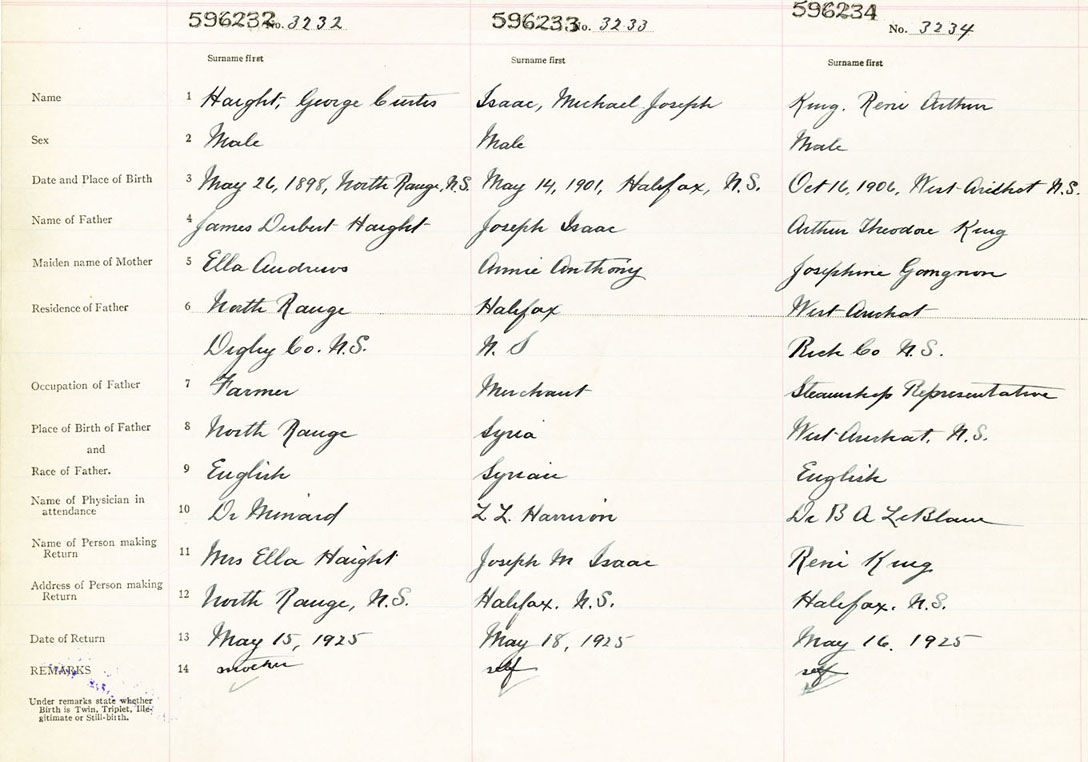 596232 No. 3232 596233 No. 3233 596234 No. 3234
Surname first Surname first Surname first
Name 1 Haight, George Curtis Isaac, Michael Joseph King. René Arthur
Sex 2 Male Male Male
Date and Place of Birth 3 May 26, 1898, North Range, N.S. May 14, 1901, Halifax, N.S. Oct 16, 1906, West Arichat N.S.
Name of Father 4 James Haight Joseph Isaac Arthur Theodore King
Maiden name of Mother 5 Ella Andrews Annie Anthony Josephine
Residence of Father 6 North Range Halifax West Arichat
Digby Co. N.S. N. S Rich Co N.S.
Occupation of Father 7 Farmer Merchant Steamship Representative
Place of Birth of Father 8 North Range Syria West Arichat. N.S.
and
Race of Father. 9 English Syrian English
Name of Physician in
attendance 10 Dr Minard L L. Harrison Dr B A LeBlanc
Name of Person making
Return 11 Mrs Ella Haight Joseph M Isaac René King
Address of Person making
Return 12 North Range, N.S. Halifax. N.S. Halifax. N.S.
Date of Return 13 May 15, 1925 May 18, 1925 May 16, 1925
REMARKS 14 mother self self
Under remarks state whether
Birth is Twin, Triplet, Ille-
gitimate or Still-birth.